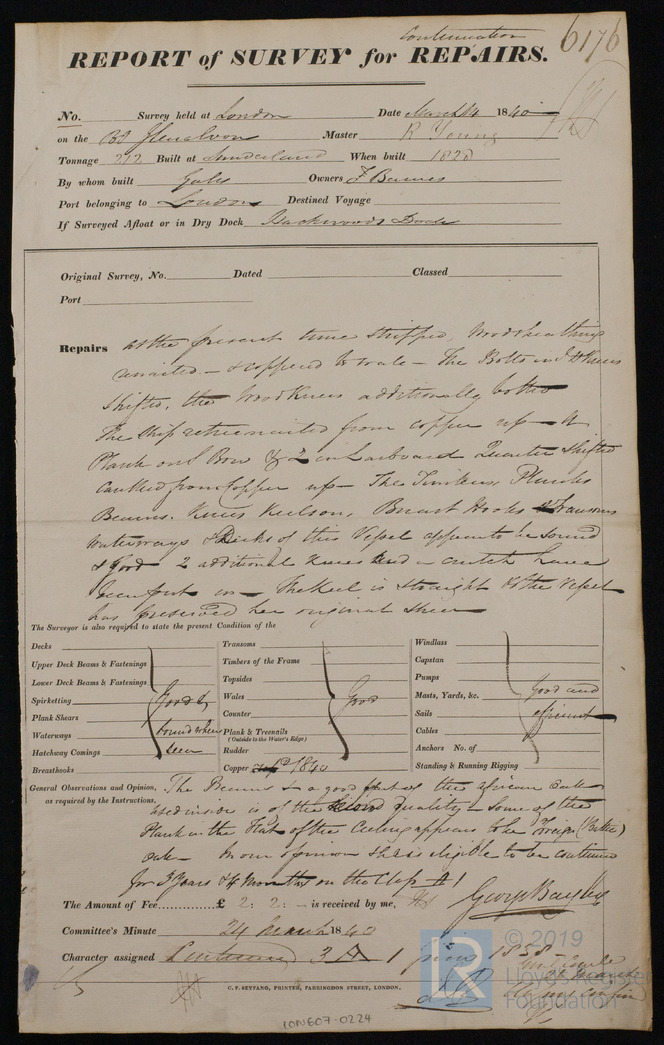 Continuation
6176
REPORT of SURVEY for REPAIRS.
No. Survey held at London Date March 14 1840
on the Bk Glenalvon Master R Young
Tonnage 272 Built at Sunderland When built 1828
By whom built Gales Owners F Barnes
Port belonging to London Destined Voyage
If Surveyed Afloat or in Dry Dock Dock
Original Survey, No. Dated Classed
Port
Repairs at the present time stripped, Woodsheathing
renailed – & coppered to wale – The Bolts in I D Knees
shifted, the Wood Knees additionally bolted
The Ship retreenailed from copper up – A
Plank on S Bow & 2 in Larboard Quarter shifted
Caulked from Copper up – The Timbers, Planks
Beams, Knees Keelson, Breast Hooks & Transoms
Waterways & Decks of this Vessel appear to be sound
& Good 2 additional Knees and a crutch have
been put in – The Keel is straight & the Vessel
has preserved her original sheer
The Surveyor is also required to state the present Condition of the
Decks
Upper Deck Beams & Fastenings
Lower Deck Beams & Fastenings
Spirketting
Plank Shears
Waterways
Hatchway Comings
Breasthooks
Good &
sound where
seen
Transoms
Timbers of the Frame
Topsides
Wales
Counter
Plank & Treenails
(Outside to the Water's Edge)
Rudder
Copper 1840
Good
Windlass
Capstan
Pumps
Masts, Yards, &c.
Sails
Cables
Anchors No. of
Standing & Running Rigging
Good and
efficient
General Observations and Opinion, The Beams & a good part of the African Oak
as required by the Instructions, used inside is of the second quality – Some of the
Plank in the Flat of the Ceiling appears to be Foreign (Baltic)
Oak – In our opinion she is eligible to be continued
for 3 Years & 4 Months on the Class A 1
The Amount of Fee £ 2: 2: – is received by me,
George Bayley
Committee's Minute 24 March 1840
Character assigned Continued 3 A 1 from 1838
C. F. SEYFANG, PRINTER, FARRINGDON STREET, LONDON,
ION607-0224
© 2019
Lloyd's Register
Foundation
LR